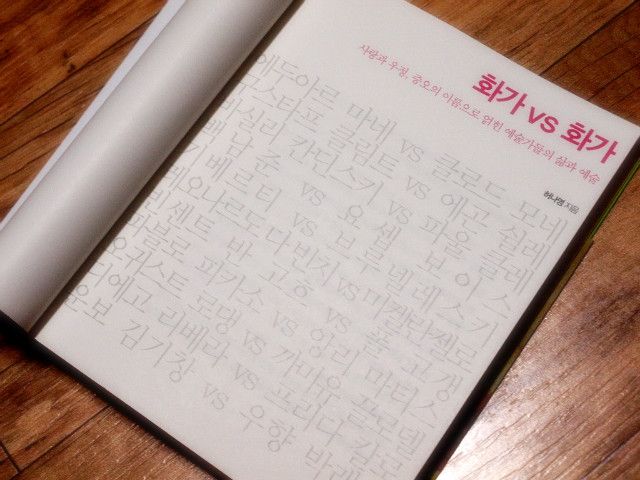 화가 vs 화가
사랑과 우정, 증오의 이름으로 얽힌 예술가들의 삶과 예술
허나영 지음
에두아르 마네 vs 클로드 모네
구스타프 클림트 vs 에곤 실레
바실리 칸딘스키 vs 파울 클레
백남준 vs 요셉 보이스
기베르티 vs 브루넬레스키
레오나르도 다 빈치 vs 미켈란젤로
빈센트 반 고흐 vs 폴 고갱
파블로 피카소 vs 앙리 마티스
오귀스트 로댕 vs 까미유 끌로델
디에고 리베라 vs 프리다 칼로
운보 김기창 vs 우향 박래